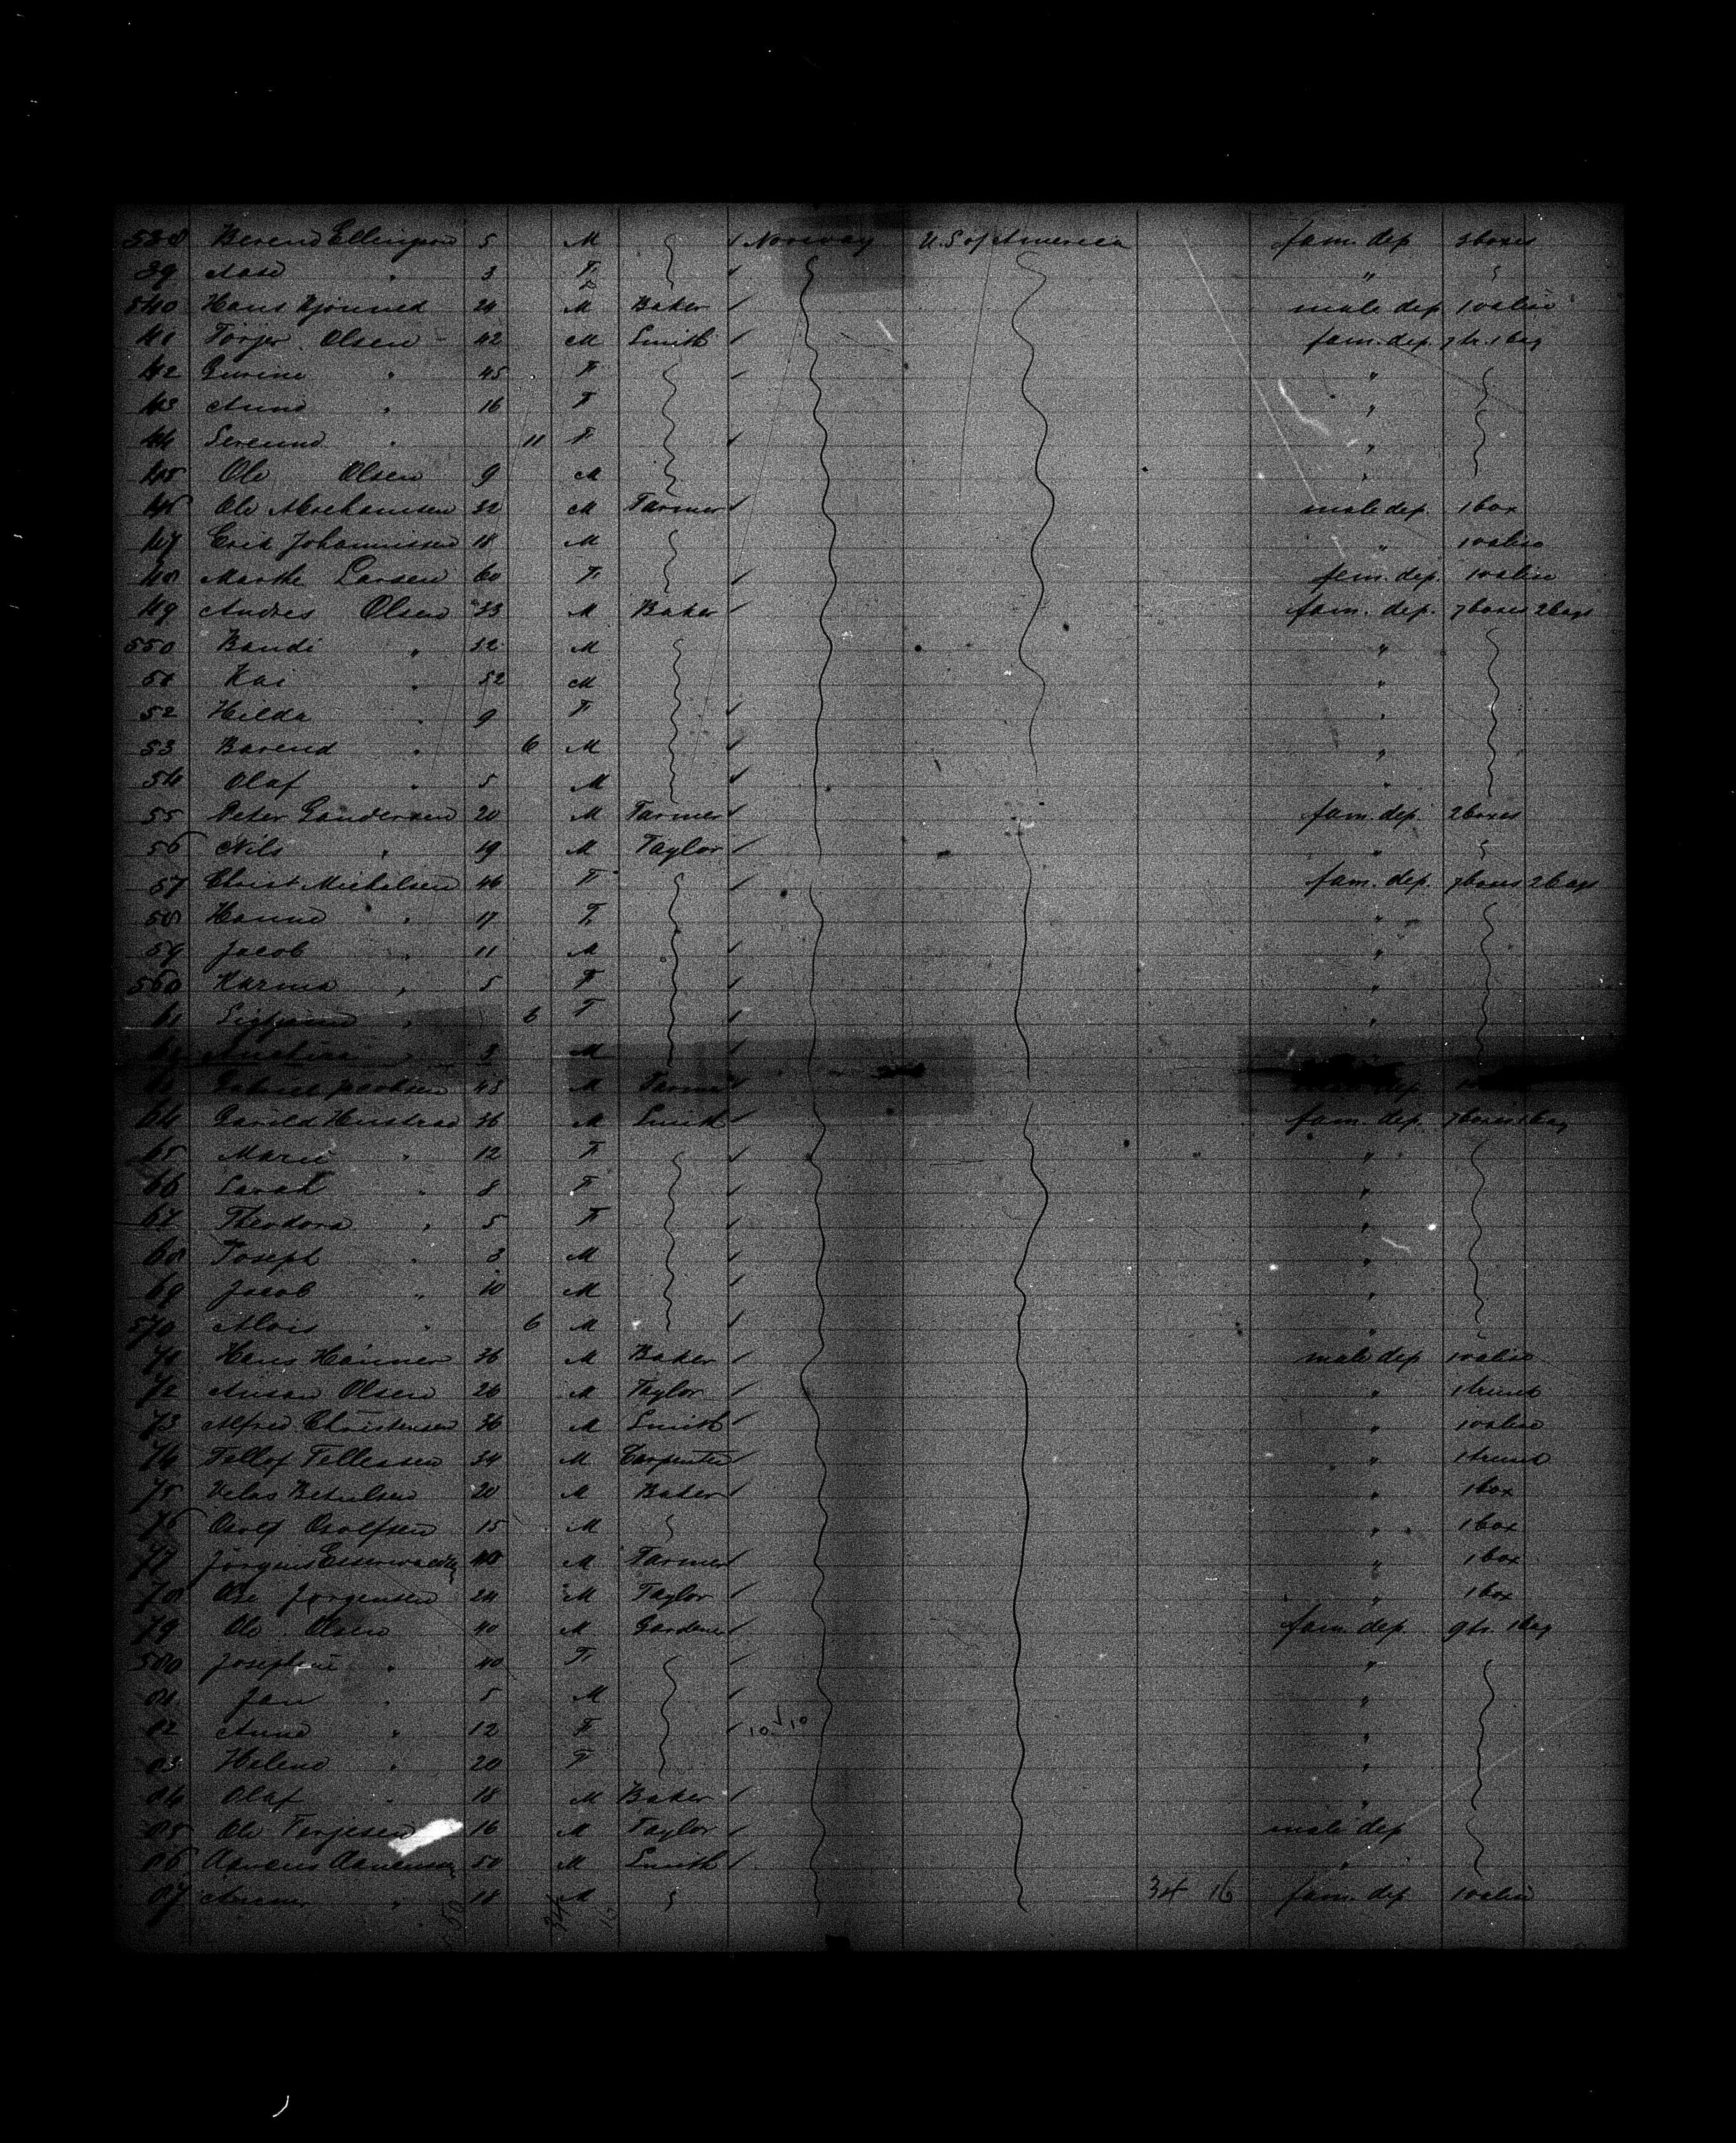 538 Berend Ellingsen 5 M Norway U.S of America fam. dep 3 boxes
39 Aase " 3 F " 
540 Hans 24 M Baker male dep 1 valise
41 Olsen 42 M Smith fam. dep. 7 tr. 1 bag
42 Gurine " 45 F "
43 Anna " 16 F "
44 " 11 F "
45 Ole Olsen 9 M "
46 Ole Abrahamsen 32 M Farmer male dep. 1 box
47 Erik Johannissen 18 M " 1 valise
48 Marthe Larsen 60 F fem. dep. 1 valise
49 Andres Olsen 33 M Baker fam. dep. 7 boxes 2 bags
550 Bandi " 32 M "
51 Kai " 52 M "
52 Hilda " 9 F "
53 Barend " 6 M "
54 Olaf " 5 M "
55 Peter Gundersen 20 M Farmer fam. dep. 2 boxes
56 Nils " 19 M Taylor "
57 Christ Michelsen 46 F fam. dep. 7 boxes 2 bags
58 Hanne " 17 F "
59 Jacob " 11 M "
560 Karina " 5 F "
61 " 6 F "
3 M
Gabriel Jacobsen 43 M Farmer dep
64 Garild 36 M Smith fam. dep. 7 boxes 1 bag
65 Marie " 12 F "
66 Sarah " 8 F "
67 Theodora " 5 F "
68 Joseph " 3 M "
69 Jacob " 10 M "
570 Alois " 6 M "
71 Hans Hanner 36 M Baker male dep 1 valise
72 Olsen 26 M Taylor " 1 trunk
73 Alfred Christensen 36 M Smith " 1 valise
74 Tellef Tellessen 34 M Carpenter " 1 trunk
75 20 M Baker " 1 box
76 Osolf Osolfsen 15 M " 1 box
77 40 M Farmer " 1 box
78 Ole Jorgensen 24 M Taylor " 1 box
79 Ole Olsen 40 M Gardener fam dep. 9 tr. 1 bag
580 Josephine " 40 F "
81 Jan " 5 M "
82 Anna " 12 F 10 10 "
83 Helene " 20 F "
84 Olaf " 18 M Baker "
85 Ole Terjesen 16 M Taylor male dep
86 50 M Smith "
87 " 18 M 34 16 fam. dep 1 valise